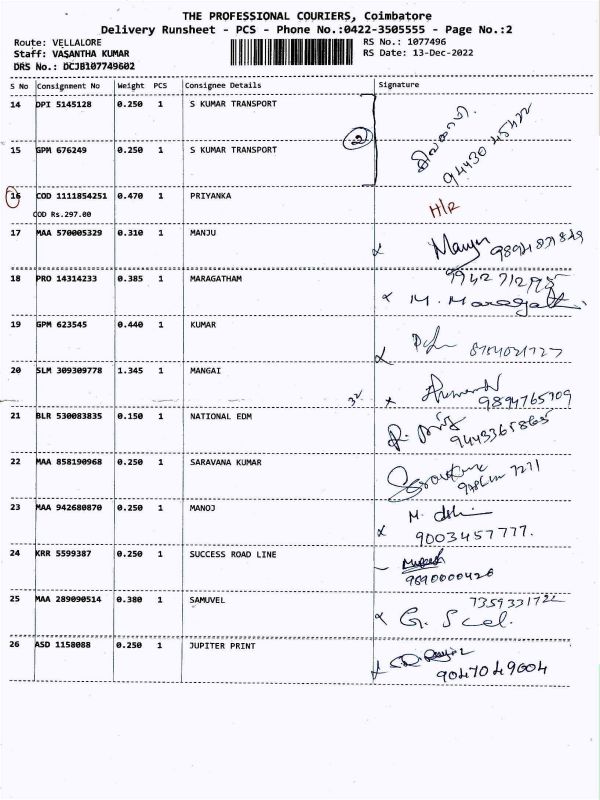 THE PROFESSIONAL COURIERS, Coimbatore
Delivery Runsheet - PCS - Phone No.:0422-3505555 - Page No.:2
Route: VELLALORE
RS No.: 1077496
Staff: VASANTHA KUMAR
RS Date: 13-Dec-2022
DRS No.: DCJB107749602
S No Consignment No Weight PCS Consignee Details Signature
14 DPI 5145128 0.250 1 S KUMAR TRANSPORT
2
15 GPM 676249 0.250 1 S KUMAR TRANSPORT
16 COD 1111854251 0.470 1 PRIYANKA H/R
COD Rs.297.00
17 MAA 570005329 0.310 1 MANJU
18 PRO 14314233 0.385 1 MARAGATHAM
19 GPM 623545 0.440 1 KUMAR
20 SLM 309309778 1.345 1 MANGAI
32 9894765709
21 BLR 530083835 0.150 1 NATIONAL EDM
9443365865
22 MAA 858190968 0.250 1 SARAVANA KUMAR
23 MAA 942680870 0.250 1 MANOJ
9003457777.
24 KRR 5599387 0.250 1 SUCCESS ROAD LINE
25 MAA 289090514 0.380 1 SAMUVEL
26 ASD 1158088 0.250 1 JUPITER PRINT
9047049004